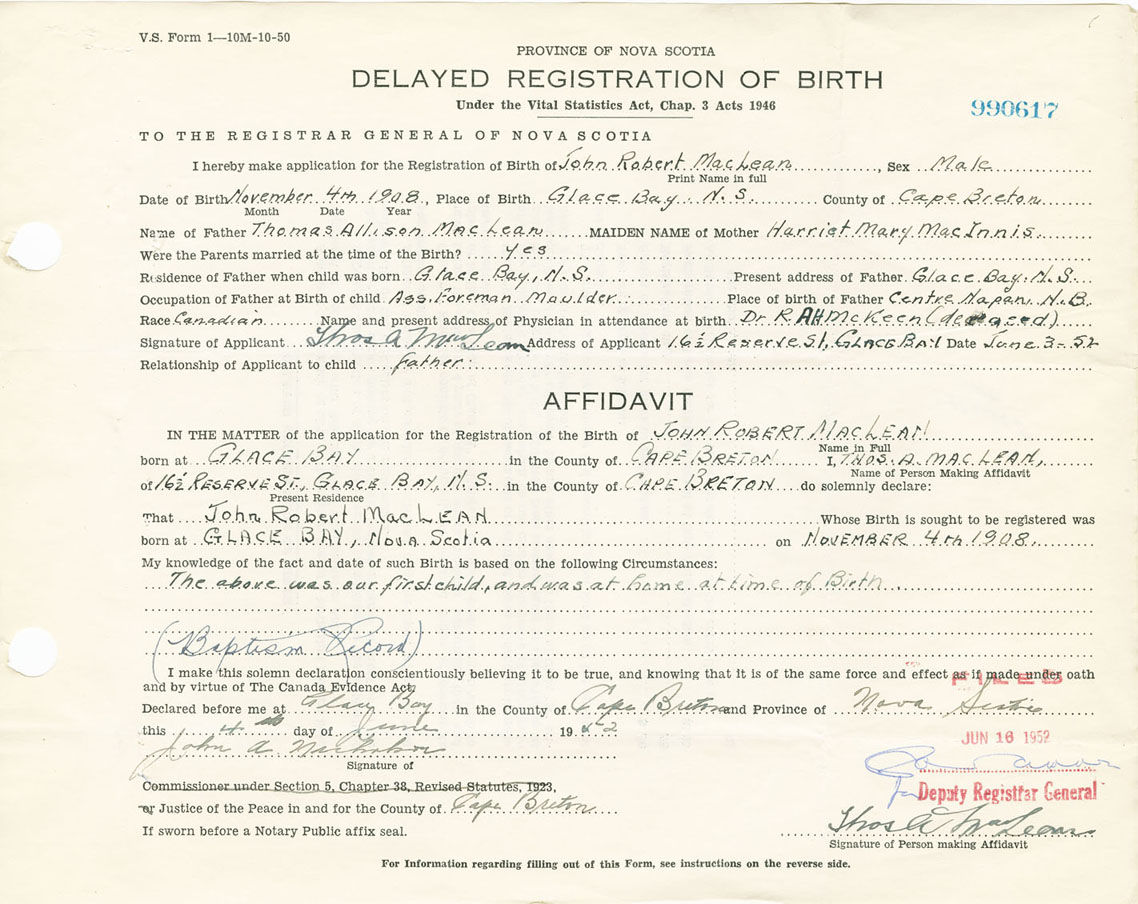 V.S. Form 1—10M-10-50
PROVINCE OF NOVA SCOTIA
DELAYED REGISTRATION OF BIRTH
Under the Vital Statistics Act, Chap. 3 Acts 1946
990617
TO THE REGISTRAR GENERAL OF NOVA SCOTIA
I hereby make application for the Registration of Birth of John Robert MacLean, Sex Male
Print Name in full
Date of Birth November 4th 1908, Place of Birth Glace Bay N.S. County of Cape Breton
Month Date Year
Name of Father Thomas Allison MacLean MAIDEN NAME of Mother Harriet Mary MacInnis
Were the Parents married at the time of the Birth? yes
Residence of Father when child was born Glace Bay, N.S. Present address of Father Glace Bay, N.S.
Occupation of Father at Birth of child Ass. Foreman Moulder Place of birth of Father Centre Napan N.B.
Race Canadian Name and present address of Physician in attendance at birth Dr R AH McKeen (deceased)
Signature of Applicant Thos A MacLean Address of Applicant 16½ Reserve St, GLACE BAY Date June 3-52
Relationship of Applicant to child father
AFFIDAVIT
IN THE MATTER of the application for the Registration of the Birth of JOHN ROBERT MACLEAN
Name in Full
born at GLACE BAY in the County of CAPE BRETON I, THOS. A. MACLEAN,
Name of Person Making Affidavit
of 16½ RESERVE ST., GLACE BAY, N.S. in the County of CAPE BRETON do solemnly declare:
Present Residence
That John Robert MacLEAN Whose Birth is sought to be registered was
born at GLACE BAY, Nova Scotia on NOVEMBER 4th 1908
My knowledge of the fact and date of such Birth is based on the following Circumstances:
The above was our first child, and was at home at time of Birth
(Baptism Record)
I make this solemn declaration conscientiously believing it to be true, and knowing that it is of the same force and effect as if made under oath
and by virtue of The Canada Evidence Act.
FILED
Declared before me at Glace Bay in the County of Cape Breton and Province of Nova Scotia
this 4th day of June 1952
JUN 16 1952
John A
Signature of
Commissioner under Section 5, Chapter 38, Revised Statutes, 1923,
for Deputy Registrar General
or Justice of the Peace in and for the County of Cape Breton
Thos A MacLean
If sworn before a Notary Public affix seal.
Signature of Person making Affidavit
For Information regarding filling out of this Form, see instructions on the reverse side.